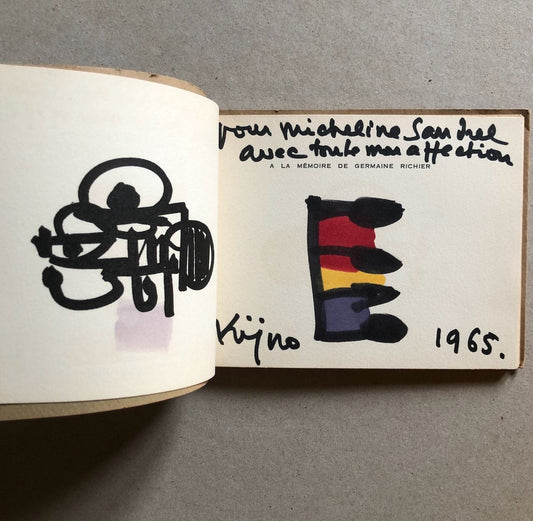 pour Micheline Sandrel
avec toute mon affection
A LA MÉMOIRE DE GERMAINE RICHIER
Kijno 1965.